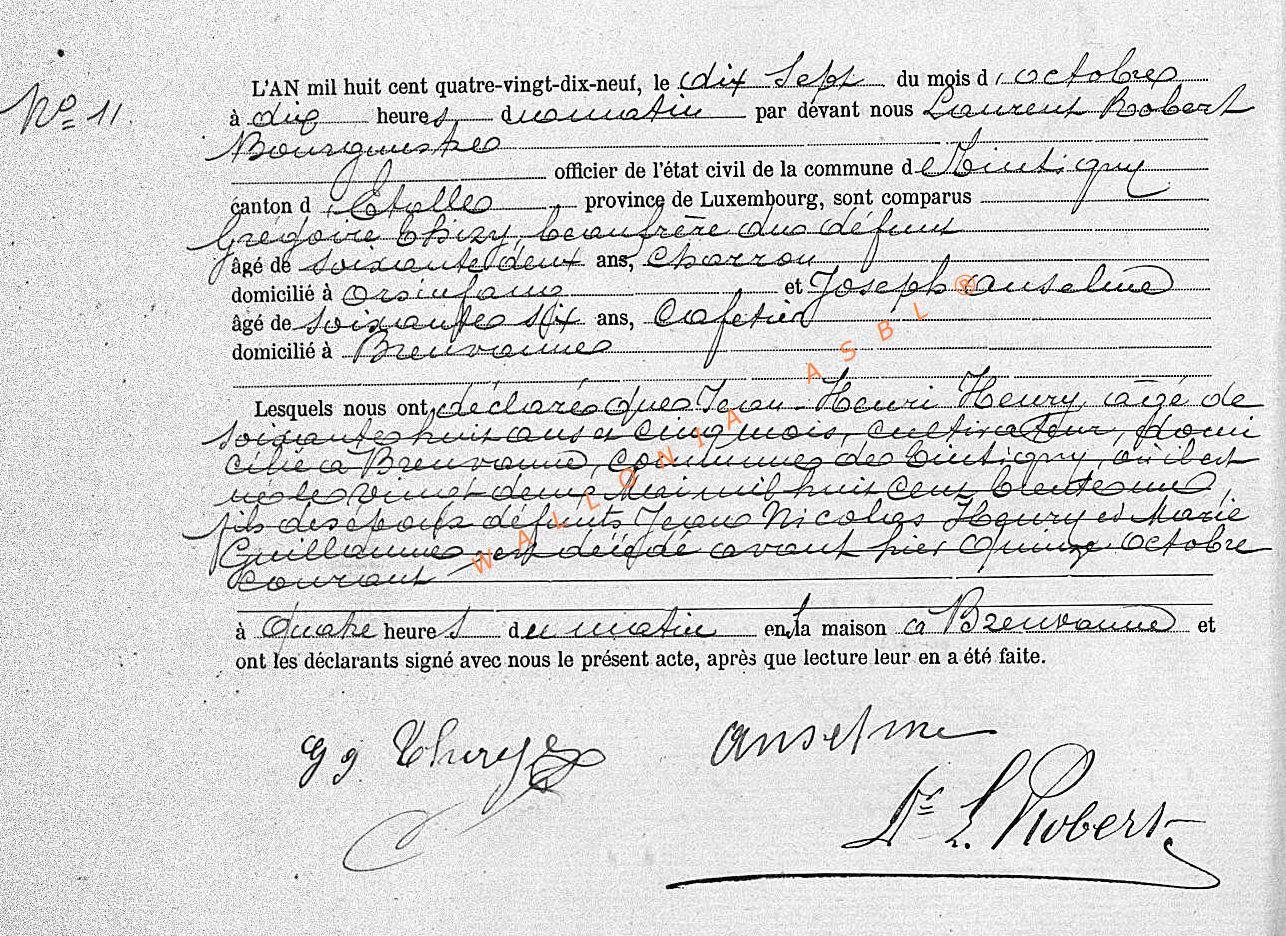 L'AN mil huit cent quatre-vingt-dix-neuf, le dix sept du mois d'octobre
N° 11.
à dix heures du matin par dévant nous Laurent Robert
Bourgmestre
officier de l'état civil de la commune de Tintigny
canton d'Etalle province de Luxembourg, sont comparus
Grégoire Thiry, beau frère du défunt
âgé de soixante deux ans, Charron
domicilié à Orsinfaing et Joseph Anselme
âgé de soixante six ans, Cafetier
domicilié à Breuvanne
Lesquels nous ont déclaré que Jean-Henri Henry, âgé de
soixante huit ans et cinq mois, cultivateur, domi
cilié à Breuvanne, commune de Tintigny, où il est
né le vingt deux Mai mil huit cent trente une,
fils des époux défunts Jean Nicolas Henry et Marie
Guillaume est décédé avant hier quinze octobre
courant
à quatre heures du matin en la maison à Breuvanne et
ont les déclarants signé avec nous le présent acte, après que lecture leur en a été faite.
Gg Thiry Anselme
Dr L. Robert
WALLONIA ASBL ®